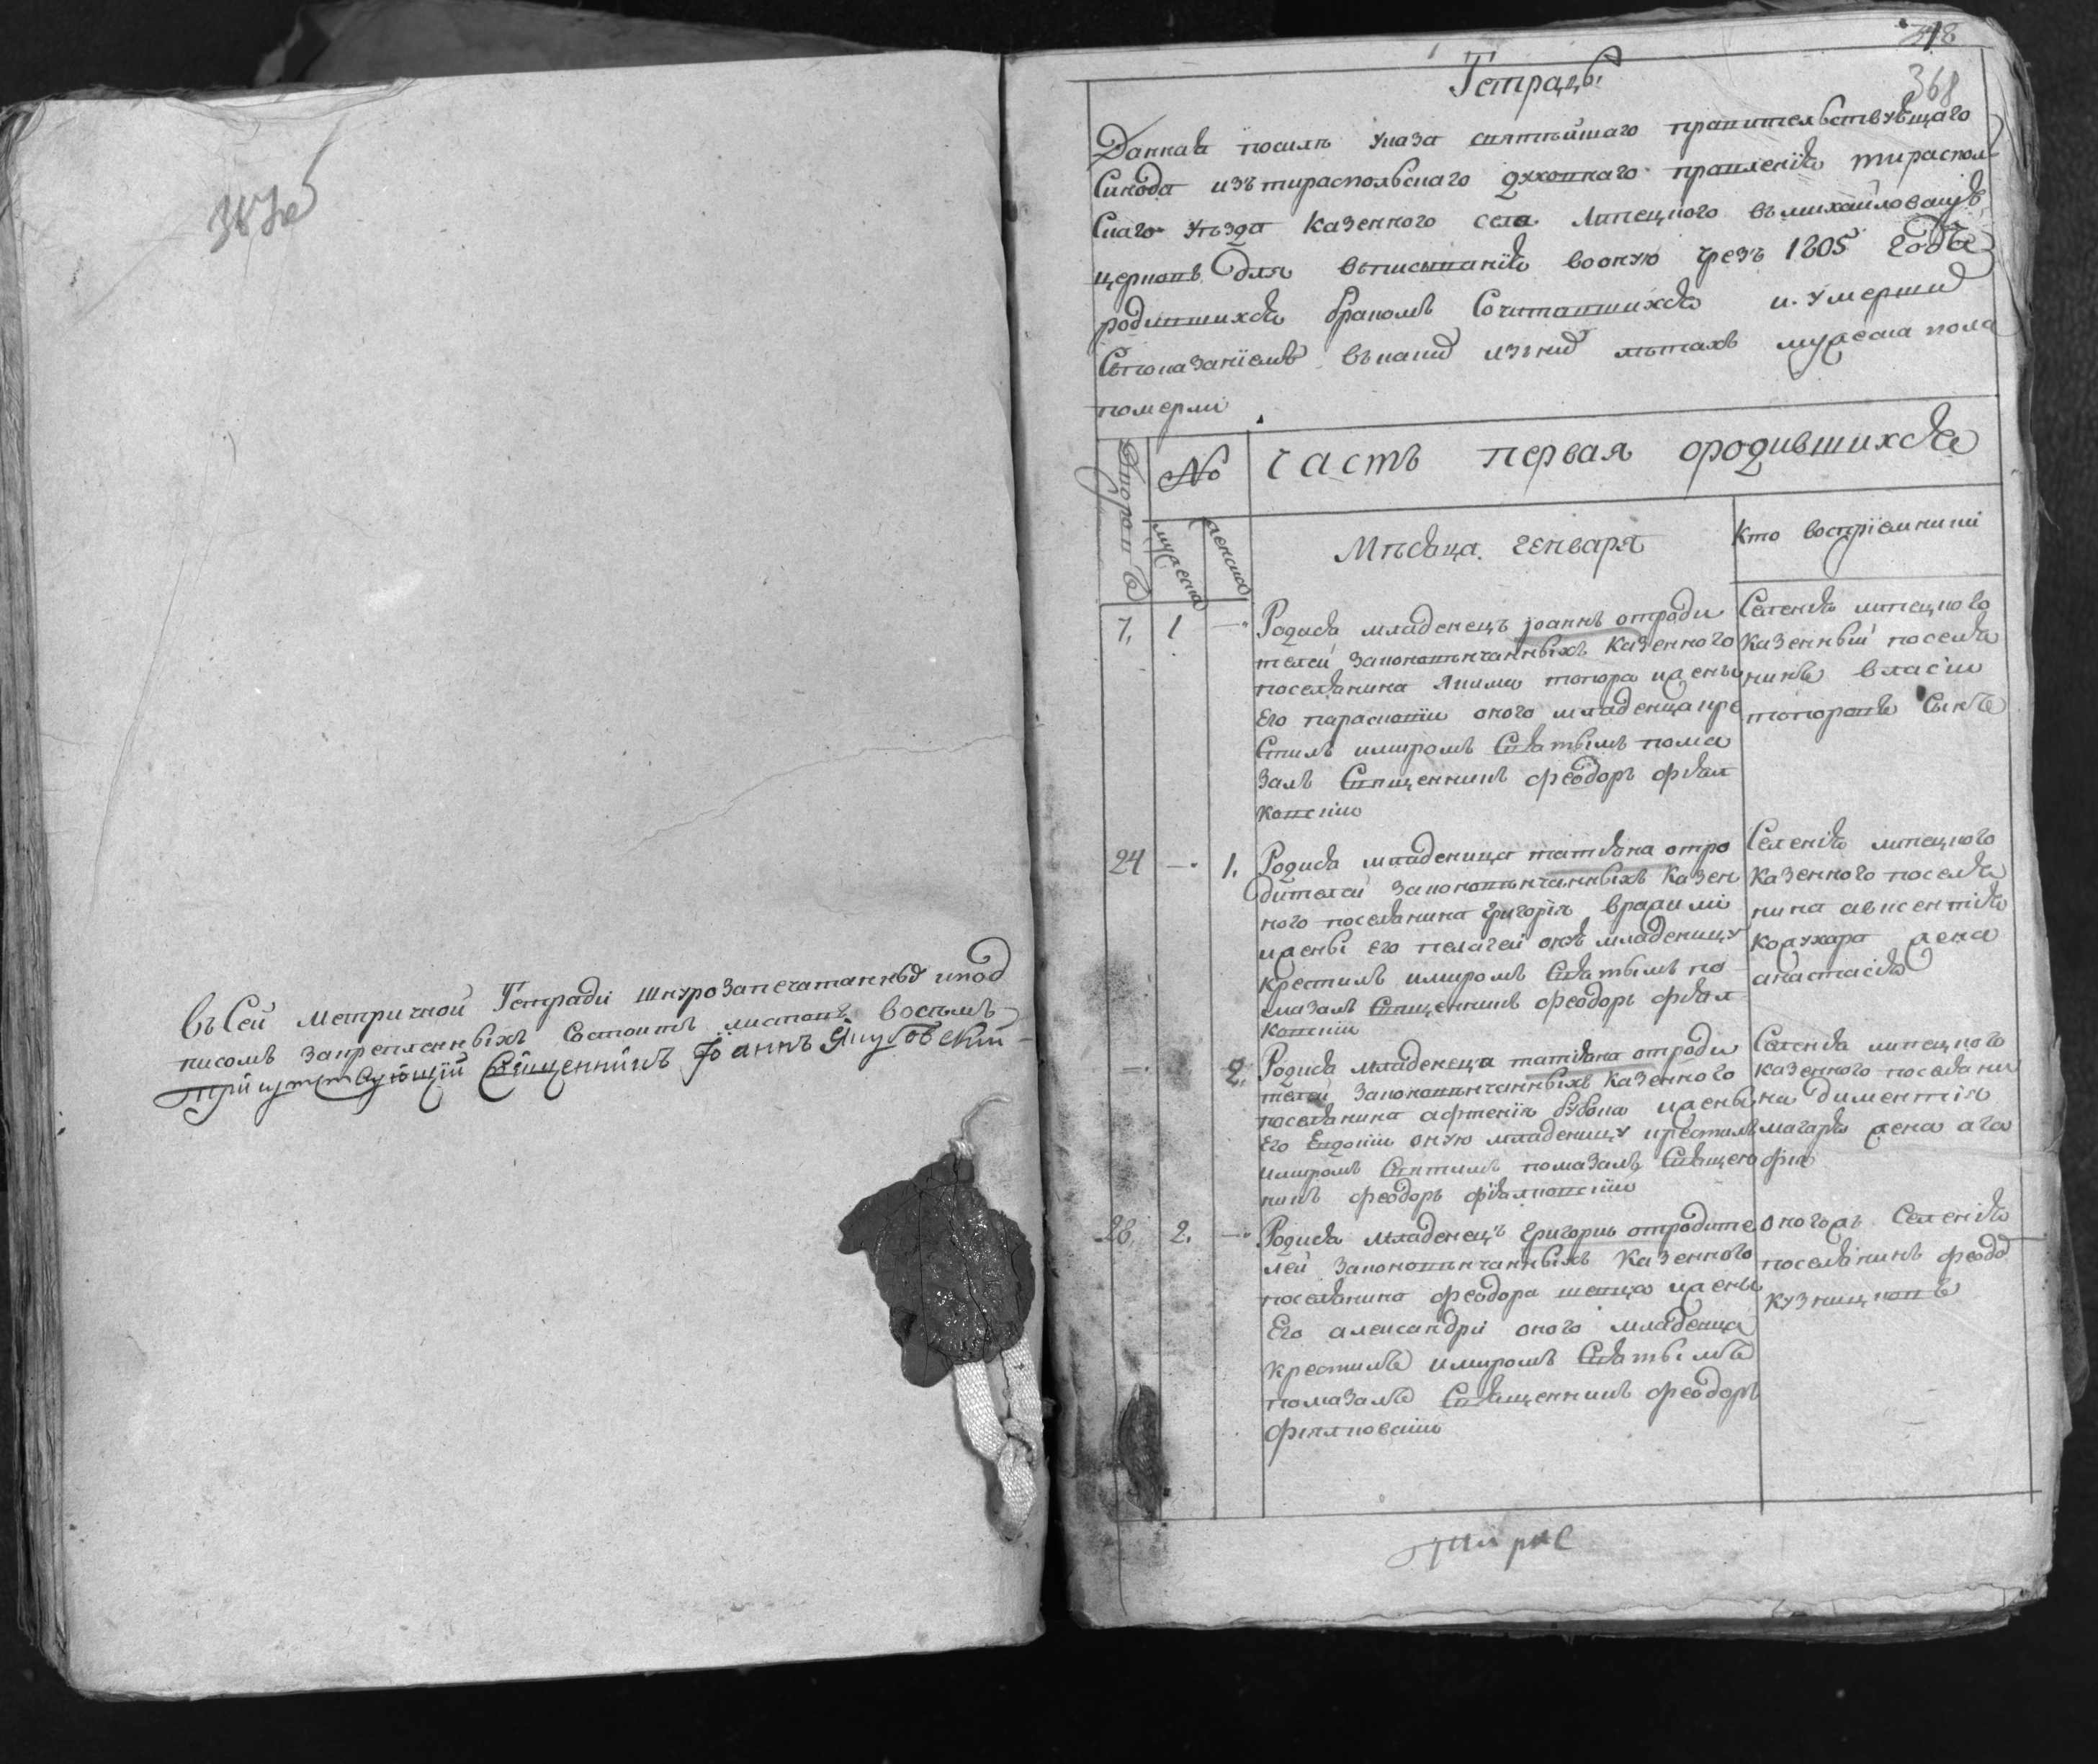 въ сей метричной Тетради шнурозапечатанныхъ и под
писомъ закрепленныхъ состоитъ листовъ восемъ
присутствующій Священникъ Іоаннъ Якубовскій
368
Тетрадь
Данная посилѣ указа святѣйшаго правительствующаго
Синода изъ тираспольскаго духовнаго правленія тираспол
скаго уѣзда казенного села Липецкого въ михайловскую
церковъ для вписыванія во оную чрезъ 1805 годъ
родившихся бракомъ сочитавшихся и умершихъ
съ показаніемъ въ какихъ изъ нихъ лѣтахъ мужеска пола
померли
№
часть первая ородившихся
мужеска
женска
Мѣсяца генваря
Кто воспріемники
7, 1 —
Родися младенецъ іоаннъ отроди
телей законовѣнчанныхъ казенного
поселянина якима топора и жены
Его параскевіи оного младенца кре
стилъ имиромъ святымъ пома
залъ Священникъ феодоръ фіал
ковскій
Селенія липецкого
казенный поселя
нинъ власій
топоровъ сынъ
24 — 1.
Родися младеница татіяна отро
дителей законовѣнчанныхъ казен
ного поселянина григорія
и жены его пелагеи онѣ младеницу
крестилъ имиромъ святымъ по
мазалъ Священникъ феодоръ фіал
ковскій
Селенія липецкого
казенного поселя
нина авксентія
кожухара жена
анастасія
— 2.
Родися младенеца татіяна отроди
телей законовѣнчанныхъ казенного
поселянина афтенія бубона и жены
Его Евдокіи оную младеницу крестилъ
имиромъ святимъ помазалъ Священ
никъ феодоръ фіалковскій
Селенія липецкого
казенного поселяни
на диментія
магаря жена ага
фія
28, 2. —
Родися младенецъ григорий отродите
лей законовѣнчанныхъ казенного
поселянина феодора шевца и жены
Его александри оного младенца
крестилъ имиромъ святымъ
помазалъ Священникъ феодоръ
фіялковскій
оногожъ селенія
поселянинъ феодор
кузницковъ